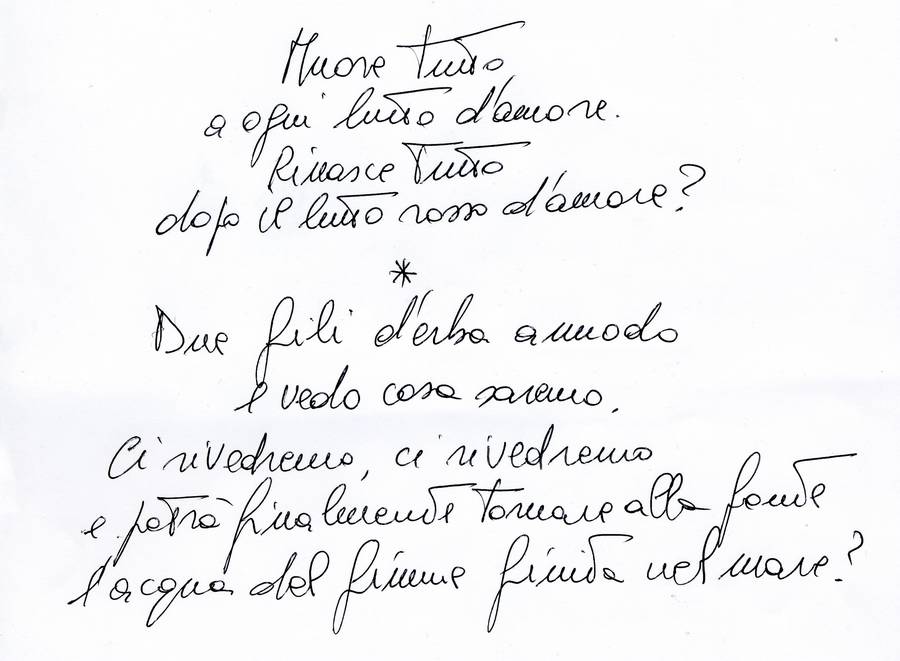 Muore tutto
a ogni lutto d'amore.
Rinasce tutto
dopo il lutto rosso d'amore?
*
Due fili d'erba annodo
e vedo cosa saremo.
Ci rivedremo, ci rivedremo
e potrà finalmente tornare alla fonte
l'acqua del fiume finita nel mare?